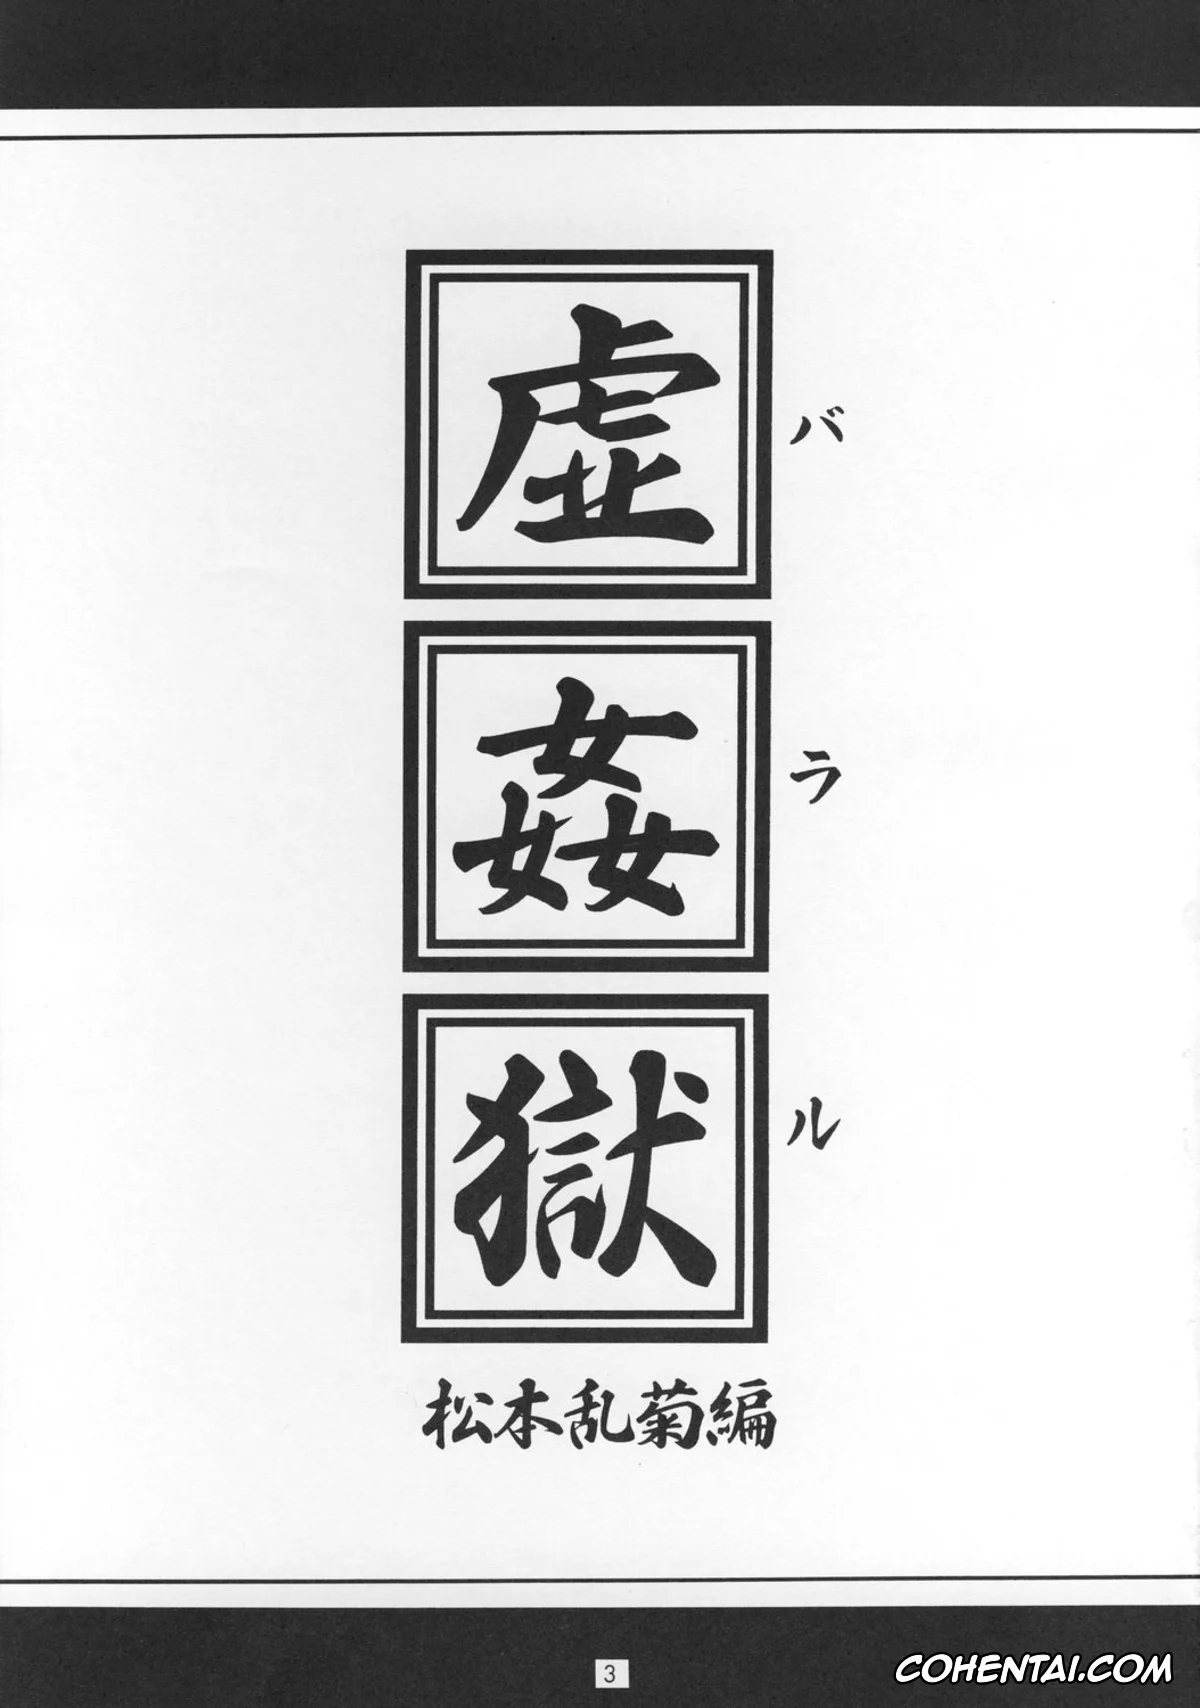 虚姦獄
バラル
松本乱菊編
3
COHENTAI.COM